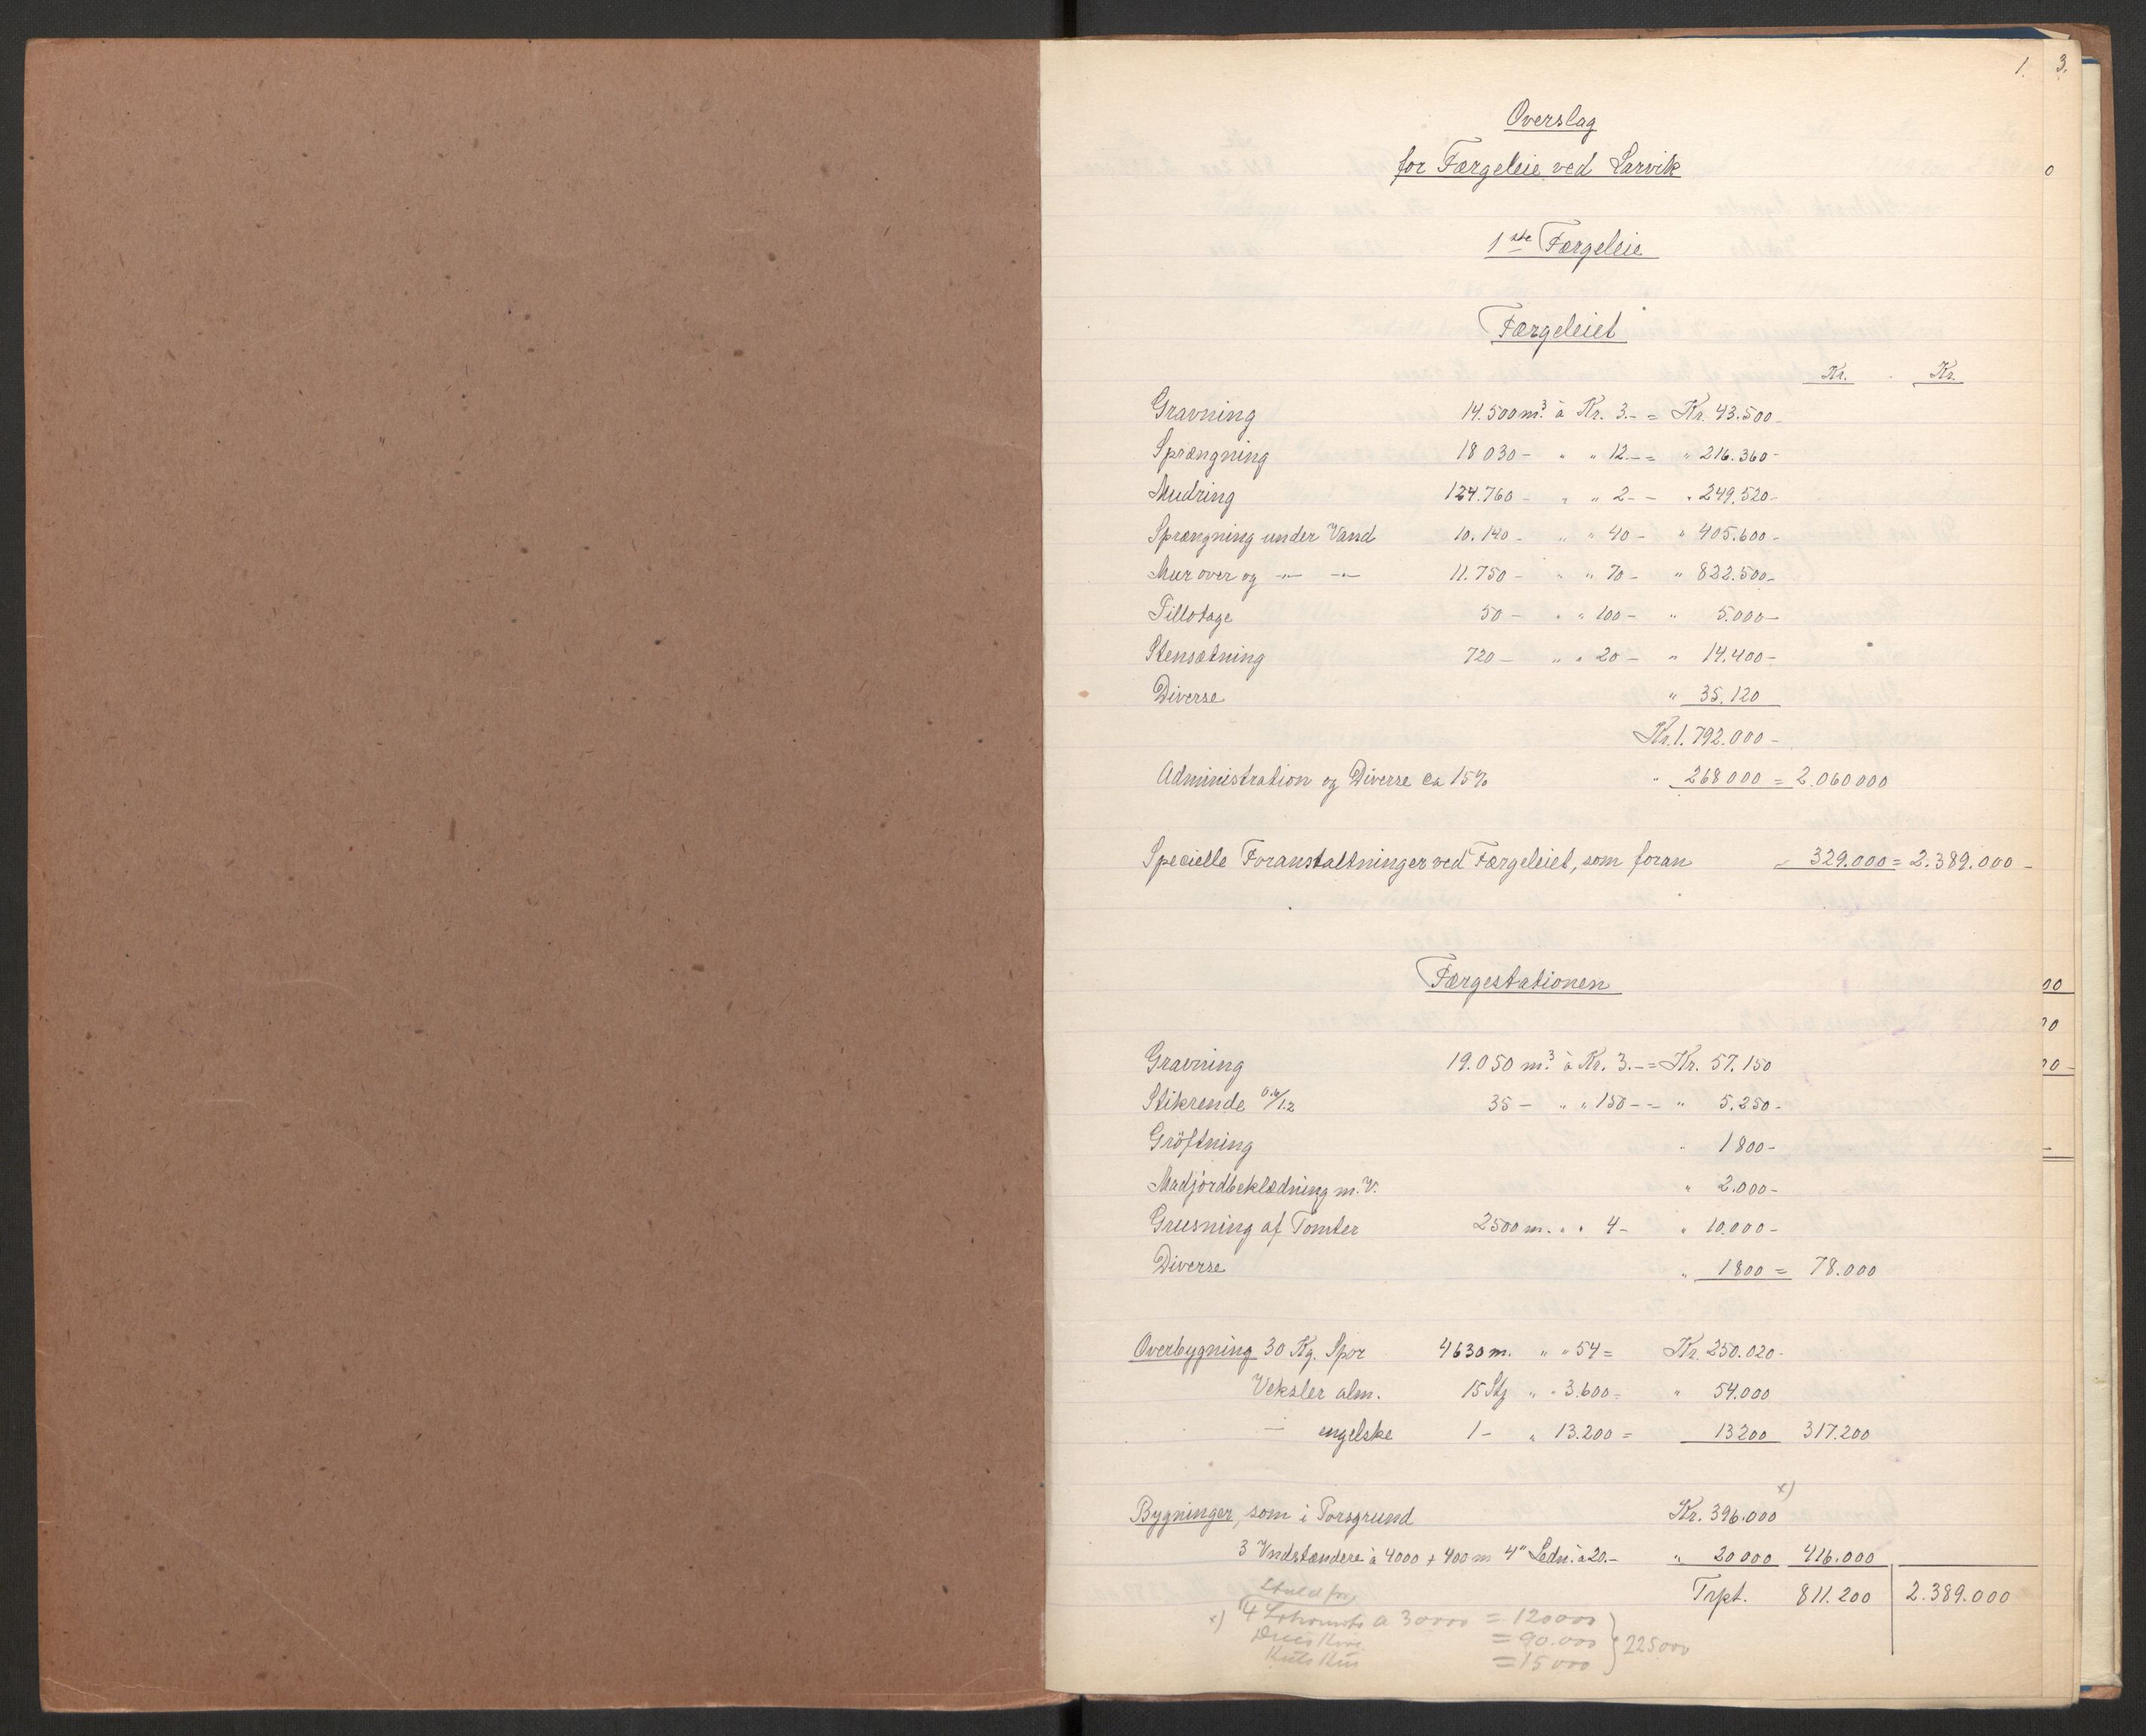 1. 3.
Overslag
for Færgeleie ved Larvik
1ste Færgeleie
Færgeleiet
Kr. Kr.
Gravning 14.500 m³ à Kr. 3.- = Kr. 43.500-
Sprængning 18 030 - " " 12.- = " 216.360-
Mudring 124.760 - " " 2 - - " 249.520-
Sprængning under Vand 10.140 - " " 40 - " 405.600-
Mur over og -"- -"- 11.750 - " " 70 - " 822.500-
Tillotage 50 - " " 100 - " 5.000-
Stensætning 720 - " " 20 - " 14.400-
Diverse " 35.120
Kr. 1.792.000-
Administration og Diverse ca 15% " 268 000 = 2.060 000
Specielle Foranstaltninger ved Færgeleiet, som foran " 329.000 = 2.389.000-
Færgestationen
Gravning 19.050 m³ à Kr. 3.- = Kr. 57.150
Stikrende 0.6/1.2 35 - " " 150 - = " 5.250-
Gröftning " 1 800-
Madjordbeklædning m.V. " 2.000-
Grusning af Tomter 2500 m. " " 4 - " 10.000-
Diverse " 1800 = 78.000
Overbygning 30 Kg. Spor 4630 m. " " 54 = Kr. 250.020-
Veksler alm. 15 Stg " " 3.600 = " 54.000
— engelske 1 - " 13.200 = 13200 317.200
Bygninger, som i Porsgrund Kr. 396.000 x)
3 Vndstændere à 4000 + 400 m 4" Ledn. à 20.- " 20 000 416.000
Trpt. 811.200 2.389.000
Stald for
x) 4 Lokomot. a 30000 = 120000
= 90.000 } 225000
= 15000